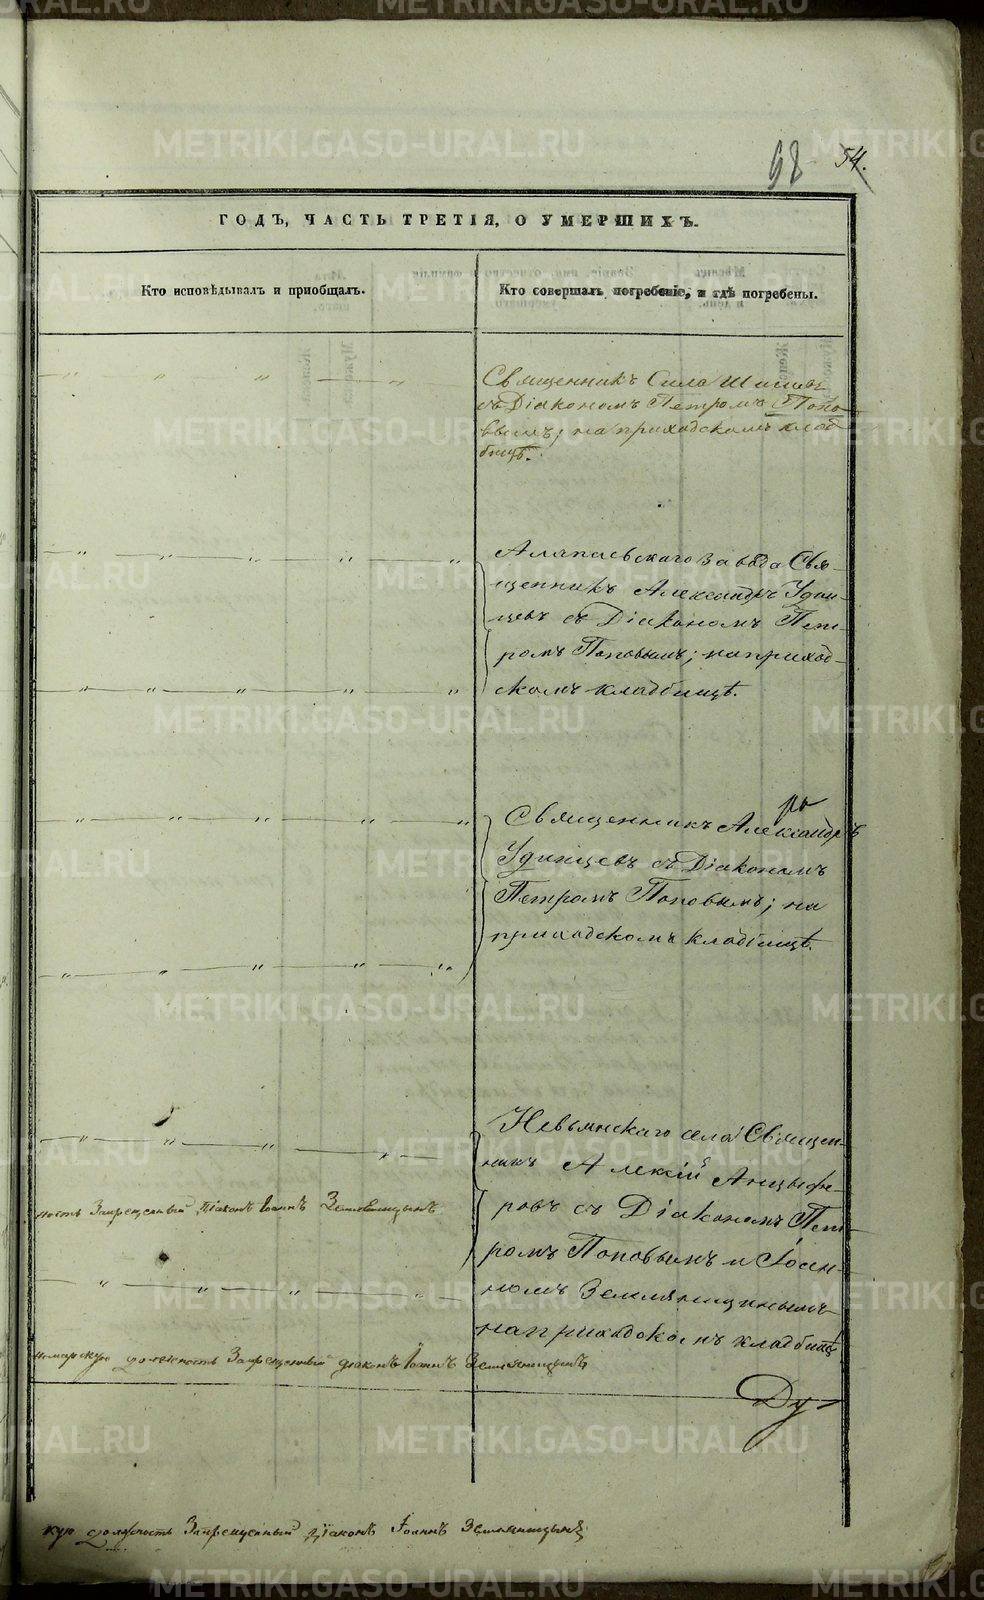 68 54.
ГОДЪ, ЧАСТЬ ТРЕТІЯ, О УМЕРШИХЪ.
Кто исповѣдывалъ и приобщалъ.
Кто совершалъ погребеніе, и гдѣ погребены.
Священникъ Сила
съ Діакономъ Петромъ Попо-
вымъ; на приходскомъ клад
бищѣ.
Алапаевскаго завода Свя-
щенникъ Александръ Удин-
цевъ съ Діакономъ Пет-
ромъ Поповымъ; на приход-
скомъ кладбищѣ.
Священникъ Александръ
Удинцевъ съ Діакономъ
Петромъ Поповымъ; на
приходскомъ кладбищѣ.
Невьянскаго села Священ-
никъ Алексій Анцыфе-
ровъ съ Діакономъ Пет-
ромъ Поповымъ и Іоан-
номъ Земляницынымъ
на приходскомъ кладбищѣ
ность Запрещенный Діаконъ Іоаннъ Земляницынъ
номарскую должность Запрещенный діаконъ Іоаннъ Земляницынъ
Ду-
кую должность Запрещенный Діаконъ Іоаннъ Земляницынъ
METRIKI.GASO-URAL.RU